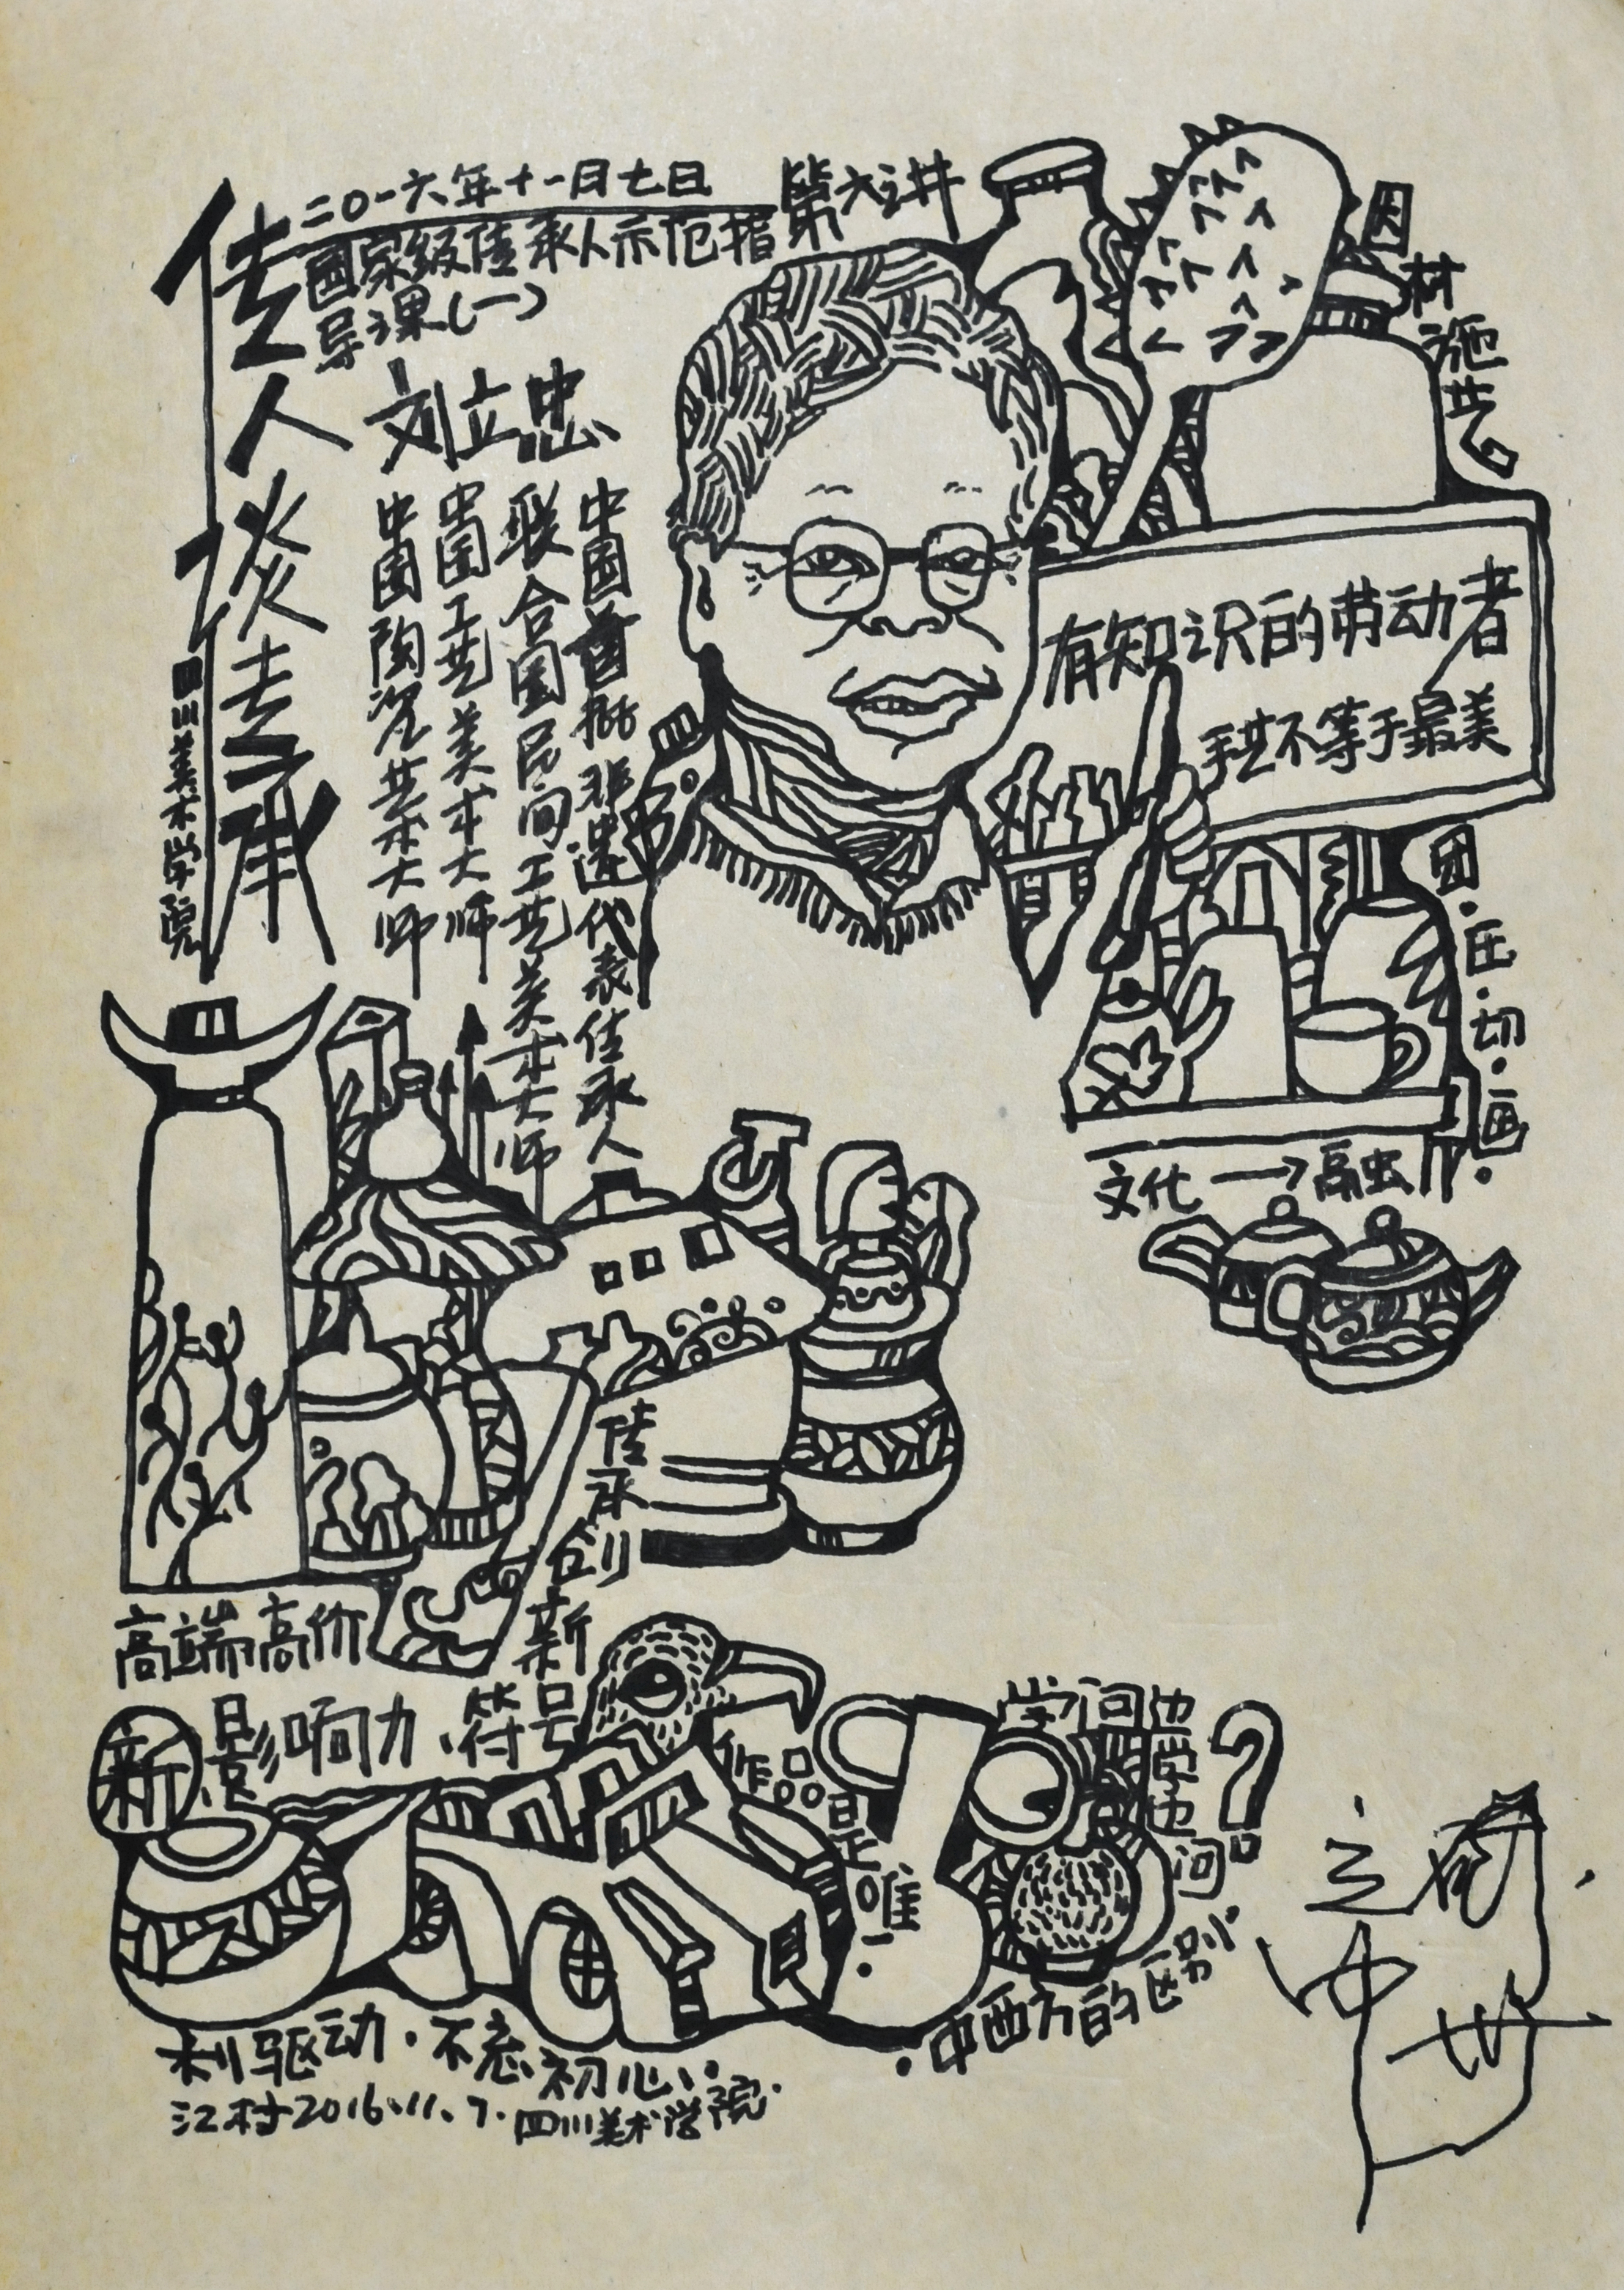 二〇一六年十一月七日
第六讲
国家级传承人示范指
导课(一)
传人谈传承
四川美术学院
刘立忠
中国陶瓷艺术大师
中国工艺美术大师
联合国民间工艺美术大师
中国首批非遗代表传承人
因材施艺
有知识的劳动者
手艺不等于最美
团·压·切·画·
文化→融
传承创新
高端高价
新影响力·符号
作品是唯一·
学问也学也问?
·中西方的区别
利驱动·不忘初心
江村2016.11.7·四川美术学院·